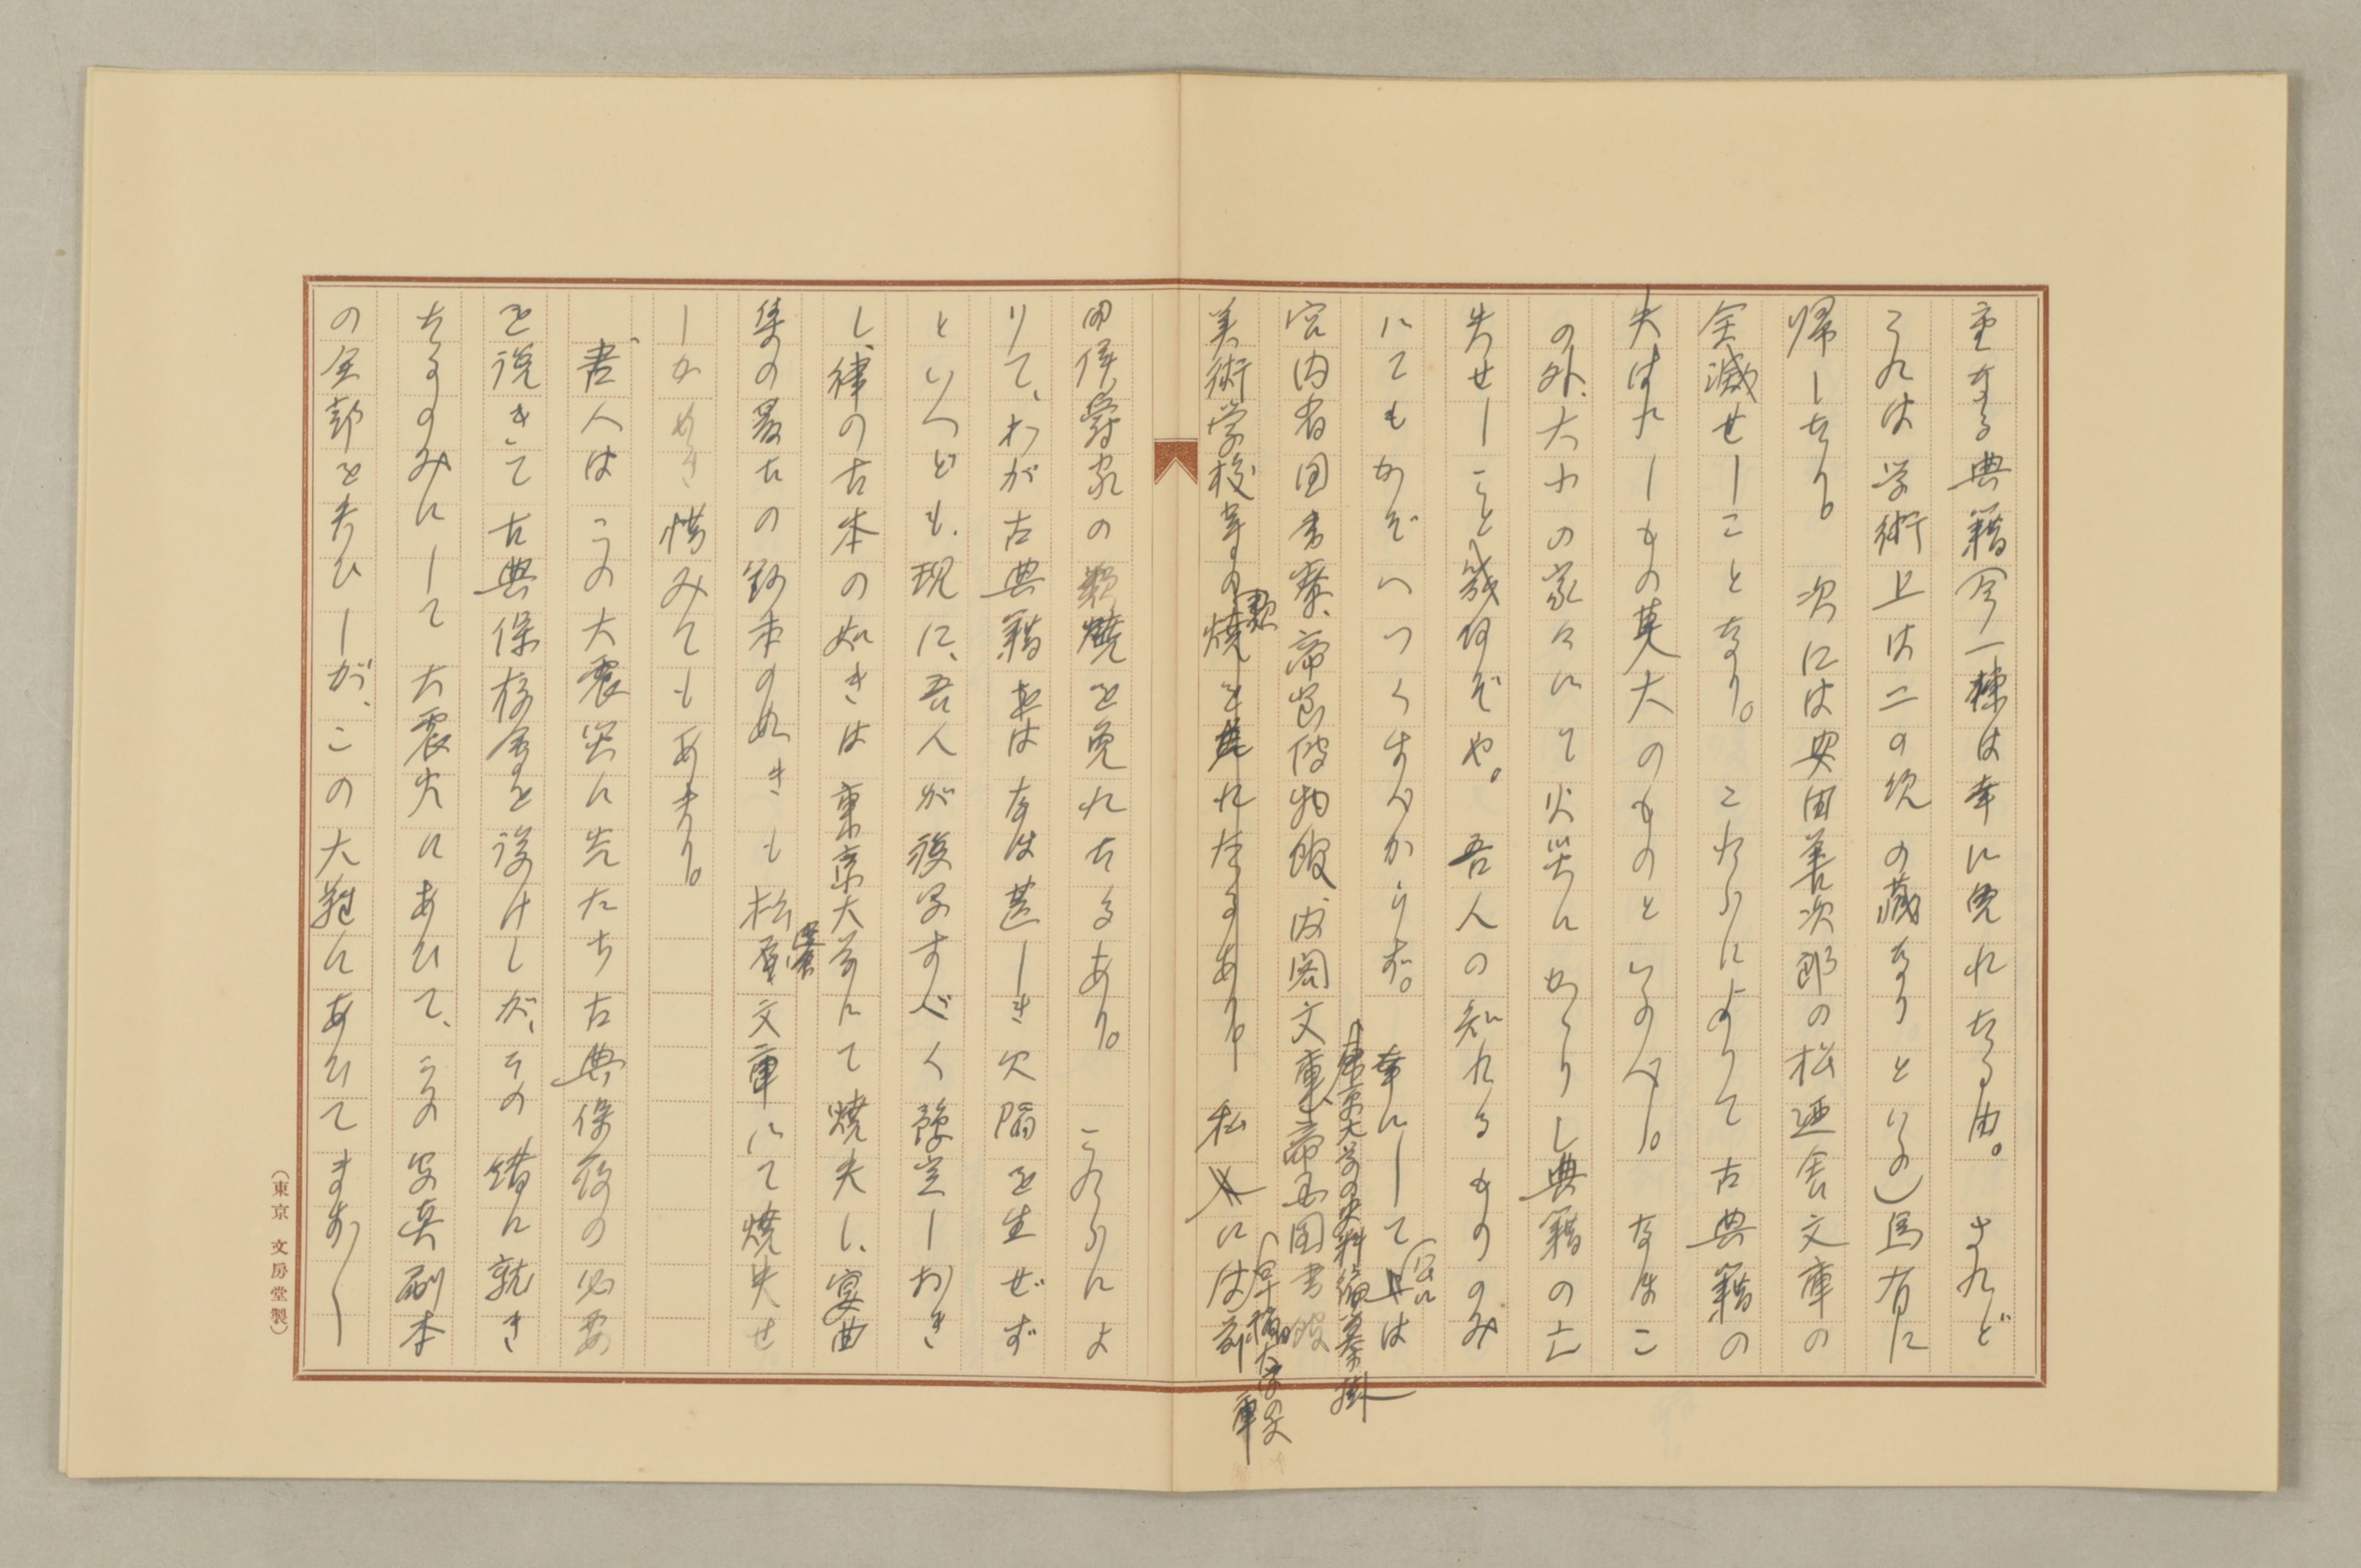 重なる典籍今一棟は幸に免れたる由。されど
これは学術上は二の次の蔵なりといふ)烏有に
帰したり。次には安田善次郎の松廼舎文庫の
全滅せしことなり。これらによりて古典籍の
失はれしもの莫大のものといふべし。なほこ
の外、大小の家々にて火災にかゝりし典籍の亡
失せしこと幾何ぞや。吾人の知れるもののみ
にてもかぞへつくすべからず。幸にして公には
東京大学の史料編纂掛
宮内省図書寮、帝室博物館、内閣文庫、帝国図書館
美術学校等の焼を免れたるあり。私には前
早稲田大学の文庫
田侯爵家の類焼を免れたるあり。これらによ
りて、わが古典籍をば甚しき欠陥を生ぜず
といへども、現に、吾人が複写すべく予定しおき
し、律の古本の如きは東京大学にて焼失し、宴曲
集の最古の鈔本の如きも松廼舎文庫にて焼失せ
しかば惜みてもあまりあり。
吾人はこの大震災に先たち古典保存の必要
を説きて古典保存会を設けしが、その緒に就き
たるのみにして大震火にあひて、その写真刷本
の全部を失ひしが、この大難にあひてますゝ
(東京 文房堂製)